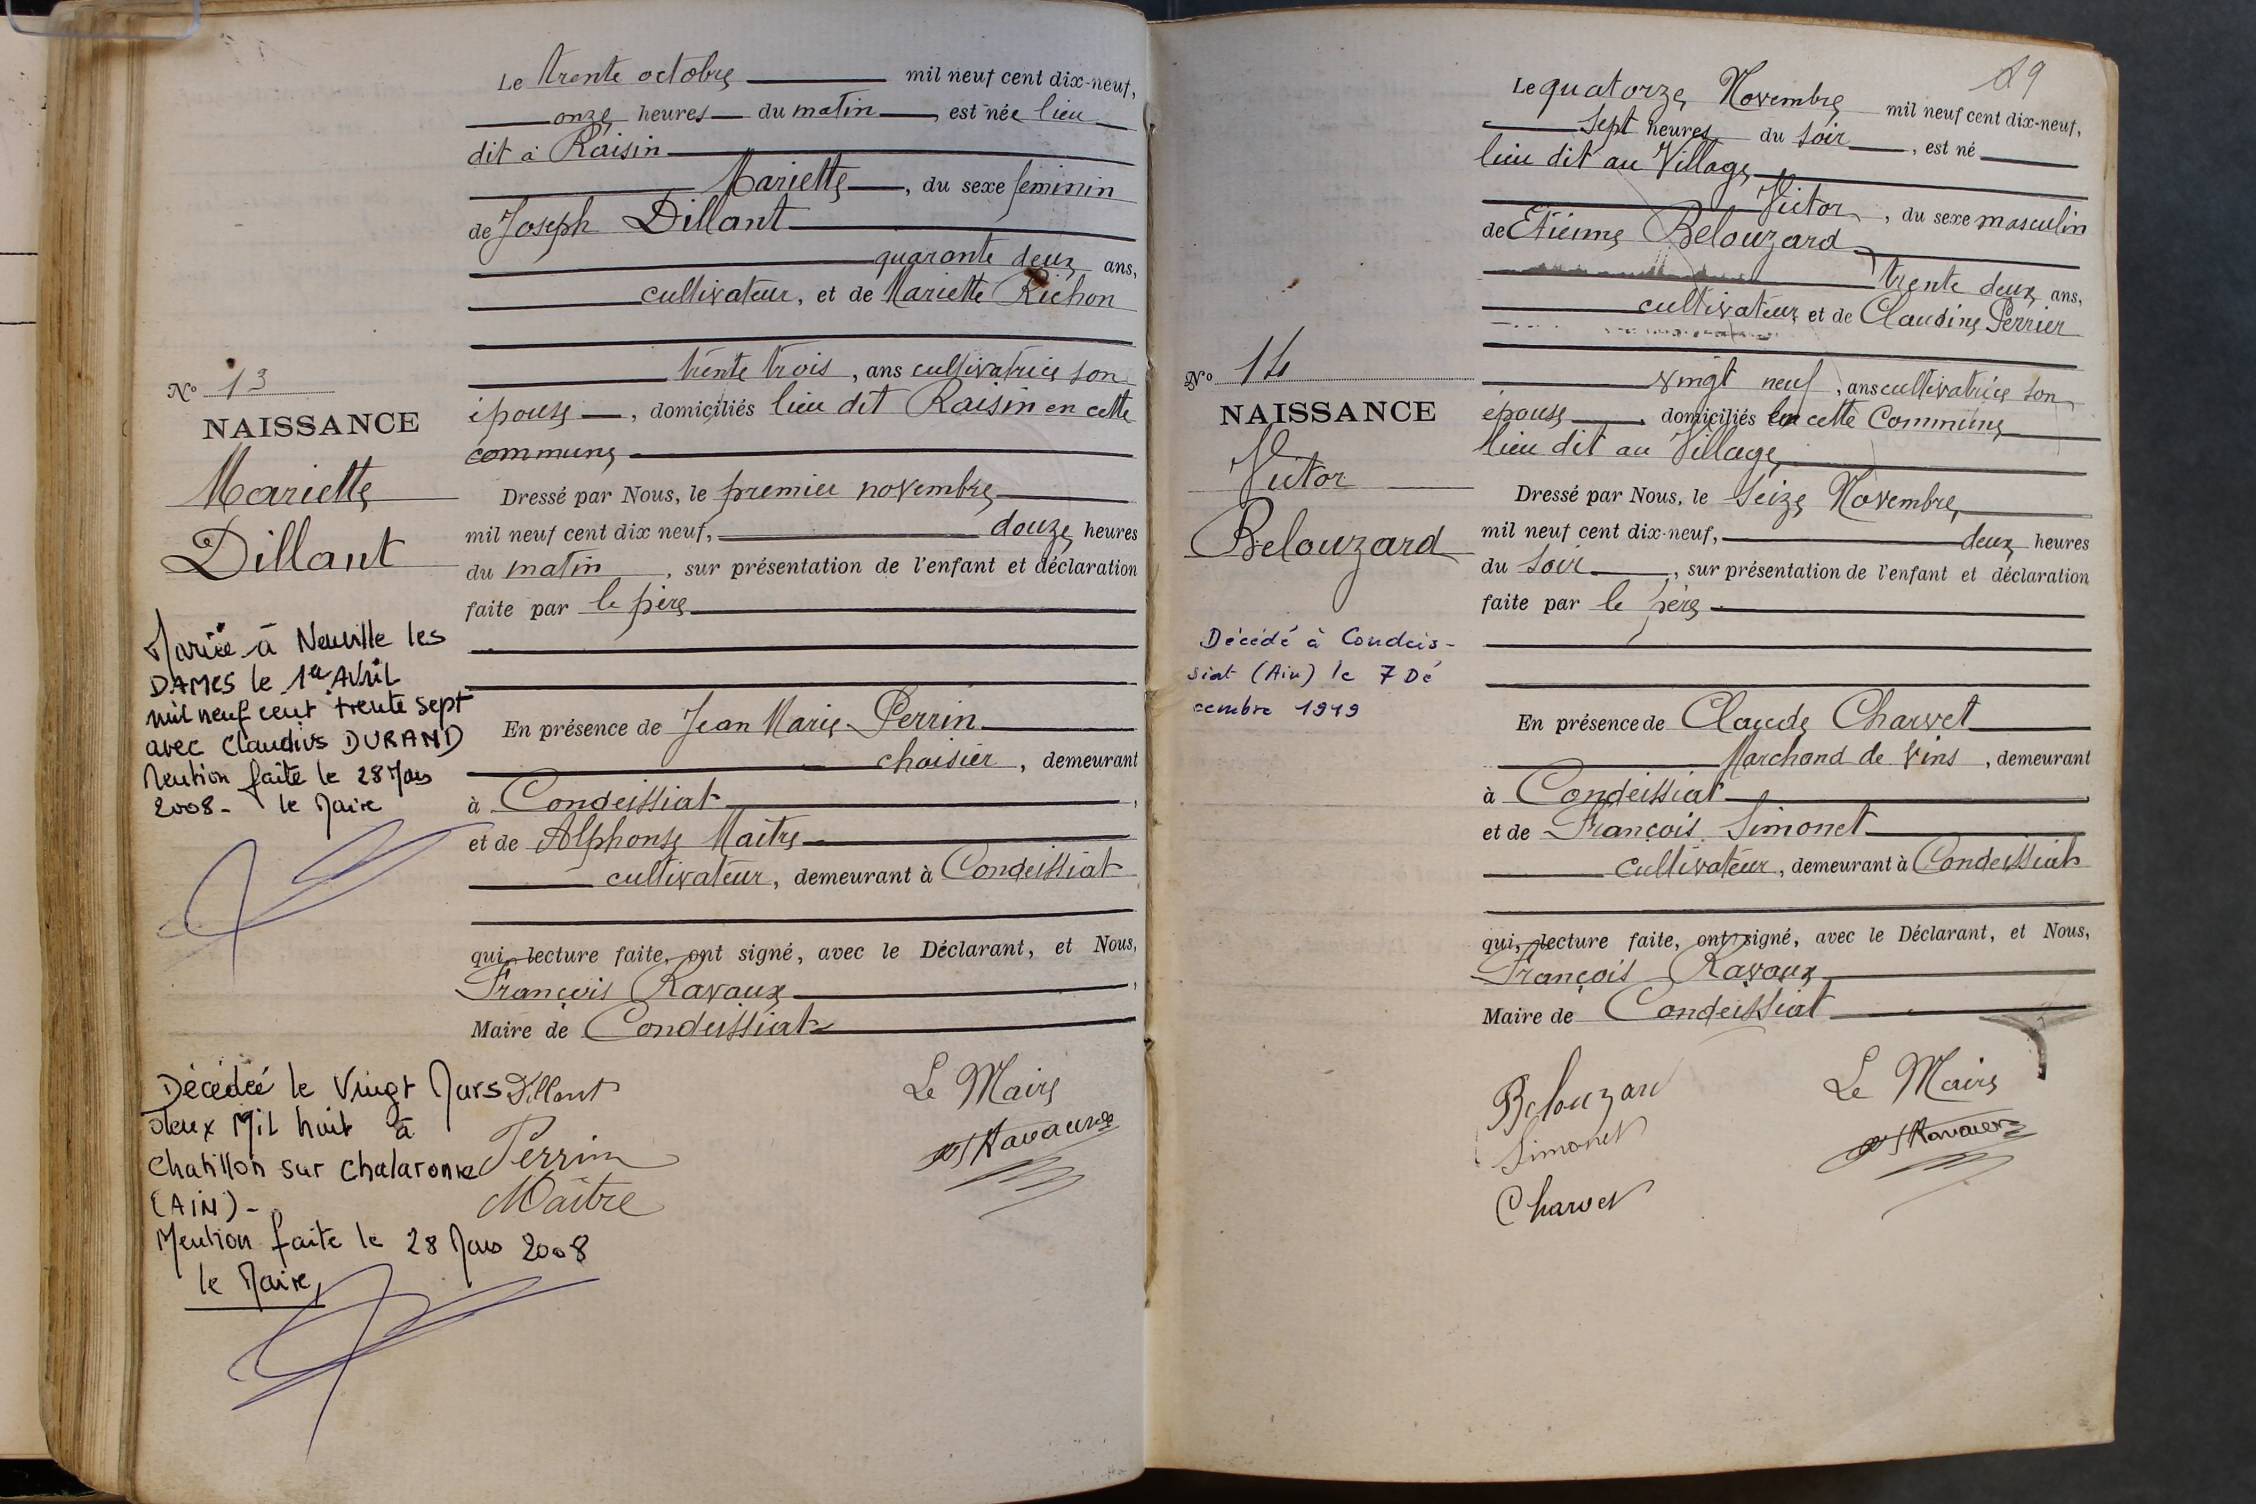 Le trente octobre mil neuf cent dix-neuf,
onze heures du matin, est née lieu
dit à Raisin
Mariette, du sexe féminin
de Joseph Dillant
quarante deux ans,
cultivateur, et de Mariette Richon
trente trois, ans cultivatrice son
épouse, domiciliés lieu dit Raisin en cette
commune
No 13
NAISSANCE
Mariette
Dillant
Dressé par Nous, le premier novembre
mil neuf cent dix neuf, douze heures
du matin, sur présentation de l'enfant et déclaration
faite par le père
Mariée à Neuville les
DAMES le 1er AVRIL
mil neuf cent trente sept
avec Claudius DURAND
Mention faite le 28 Mars
2008 - le Maire
En présence de Jean Marie Perrin
choisier, demeurant
à Condeissiat,
et de Alphonse Maitre
cultivateur, demeurant à Condeissiat
qui, lecture faite, ont signé, avec le Déclarant, et Nous,
François Ravaux,
Maire de Condeissiat
Décédée le Vingt Mars
deux Mil huit à
Chatillon sur Chalaronne
(AIN) -
Mention faite le 28 Mars 2008
le Maire,
Dillant
Perrin
Maître
Le Maire
Ravaux
29
Le quatorze Novembre mil neuf cent dix-neuf,
sept heures du soir, est né
lieu dit au Village
Victor, du sexe masculin
de Etienne Belouzard
trente deux ans,
cultivateur et de Claudine Perrier
vingt neuf, ans cultivatrice son
épouse, domiciliés en cette Commune
lieu dit au Village
No 14
NAISSANCE
Victor
Belouzard
Dressé par Nous, le Seize Novembre
mil neuf cent dix-neuf, deux heures
du soir, sur présentation de l'enfant et déclaration
faite par le père
Décédé à Condeis-
siat (Ain) le 7 Dé
cembre 1919
En présence de Claude Charvet
Marchand de Vins, demeurant
à Condeissiat
et de François Simonet
cultivateur, demeurant à Condeissiat
qui, lecture faite, ont signé, avec le Déclarant, et Nous,
François Ravaux
Maire de Condeissiat
Belouzard
Simonet
Charvet
Le Maire
Ravaux